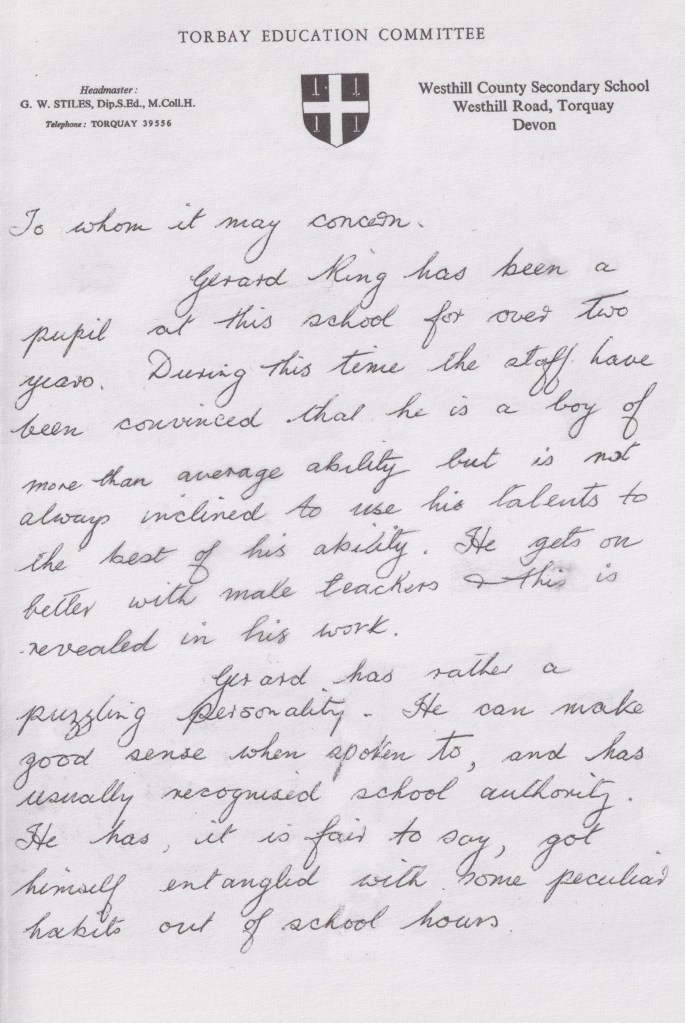 TORBAY EDUCATION COMMITTEE
Headmaster:
G. W. STILES, Dip.S.Ed., M.Coll.H.
Telephone: TORQUAY 39556
Westhill County Secondary School
Westhill Road, Torquay
Devon
To whom it may concern.
Gerard King has been a
pupil at this school for over two
years. During this time the staff have
been convinced that he is a boy of
more than average ability but is not
always inclined to use his talents to
the best of his ability. He gets on
better with male teachers & this is
revealed in his work.
Gerard has rather a
puzzling personality. He can make
good sense when spoken to, and has
usually recognised school authority.
He has, it is fair to say, got
himself entangled with some peculiar
habits out of school hours